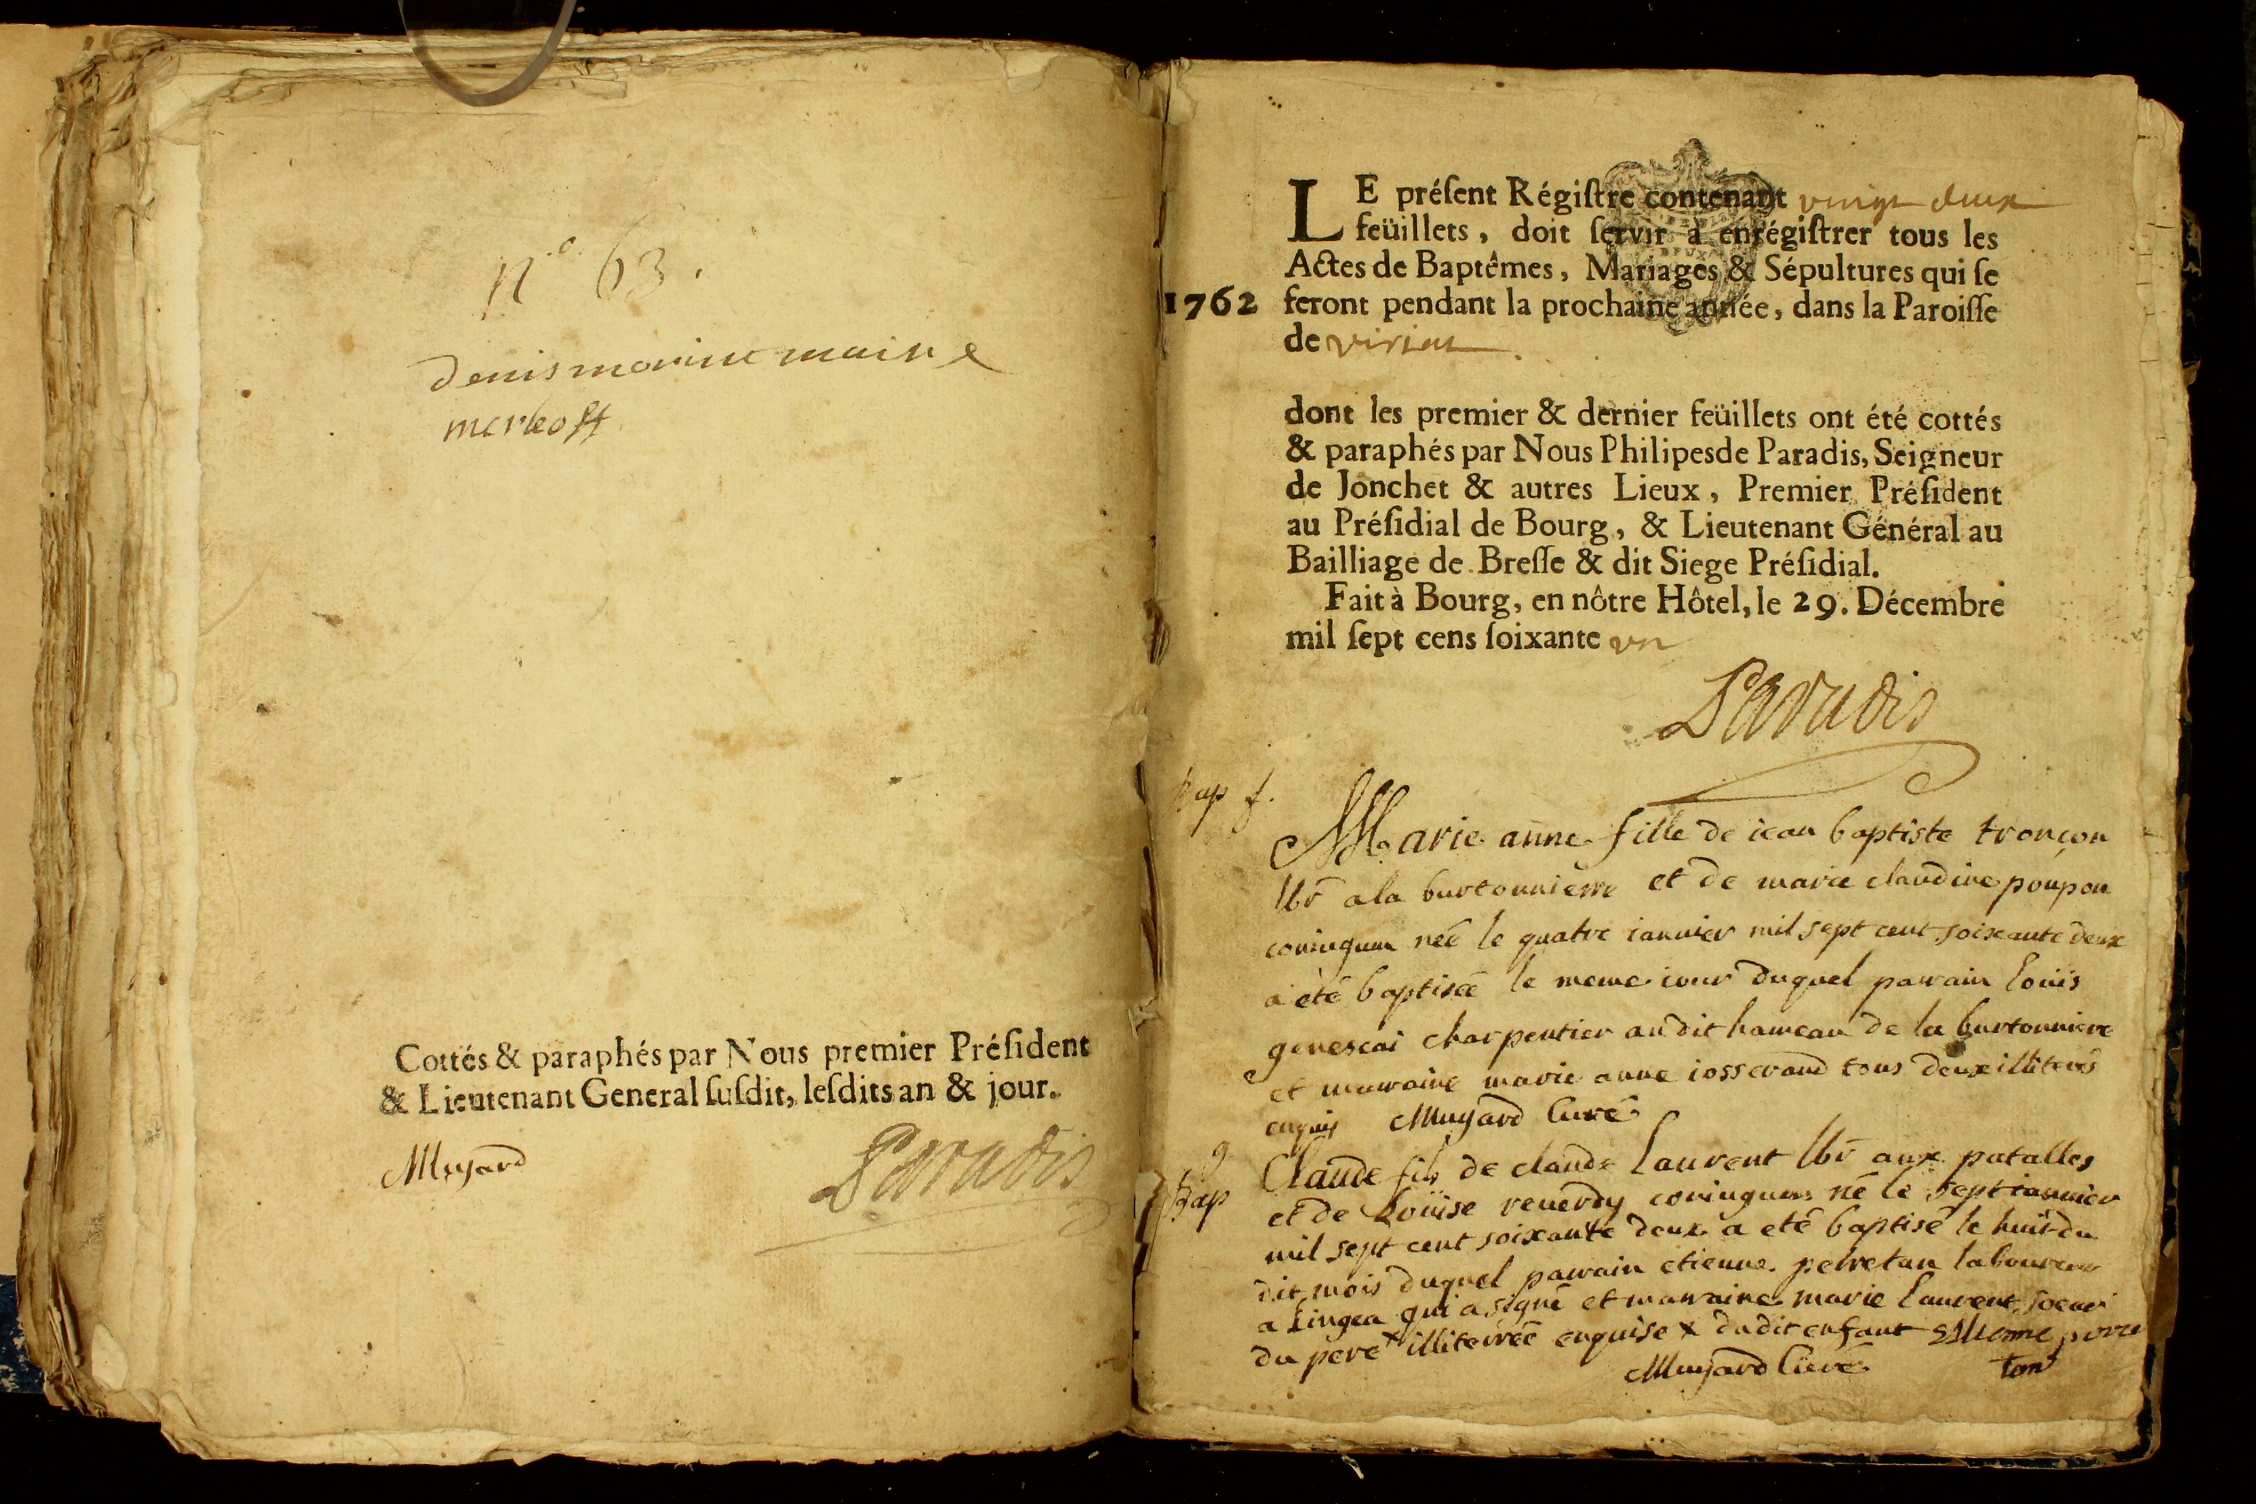 n.o 63.
denis marine maire
Cottés & paraphés par Nous premier Préſident
& Lieutenant General ſuſdit, leſdits an & jour.
Muyard
Paradis
LE préſent Régiſtre contenant vingt deux
feüillets, doit ſervir à enrégiſtrer tous les
Actes de Baptêmes, Mariages & Sépultures qui ſe
1762 feront pendant la prochaine année, dans la Paroiſſe
de viriat.
dont les premier & dernier feüillets ont été cottés
& paraphés par Nous Philipes de Paradis, Seigneur
de Jonchet & autres Lieux, Premier Préſident
au Préſidial de Bourg, & Lieutenant Général au
Bailliage de Breſſe & dit Siege Préſidial.
Fait à Bourg, en nôtre Hôtel, le 29. Décembre
mil ſept cens ſoixante un
Paradis
Bap f.
Marie anne fille de iean baptiste tronçon
lbr a la burtonniere et de marie claudine poupon
coniugum neé le quatre ianvier mil sept cent soixante deux
a été baptiseé le meme iour duquel parrain loüis
charpentier au dit hameau de la burtonniere
et marraine marie anne iosserand tous deux illiterés
enquis Muyard Curé
g
Bap
Claude fils de claude laurent lbr aux patalles
et de Loüise reuerdy coniugum né le sept ianvier
mil sept cent soixante deux a eté baptisé le huit du
dit mois duquel parrain etienne pelretan laboureur
a Lingea qui a signé et marraine marie laurent soeur
du pere x illiterreé enquise x du dit enfant
Muyard Curé